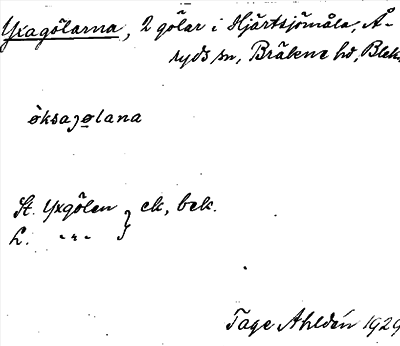 Yxagölarna, 2 gölar i Hjärtsjömåla, Å-
ryds sn, Bräkne hd, Blek.
öksajølana
St. Yxgölen } ek, bek.
L. -"-
Tage Ahldén 1929